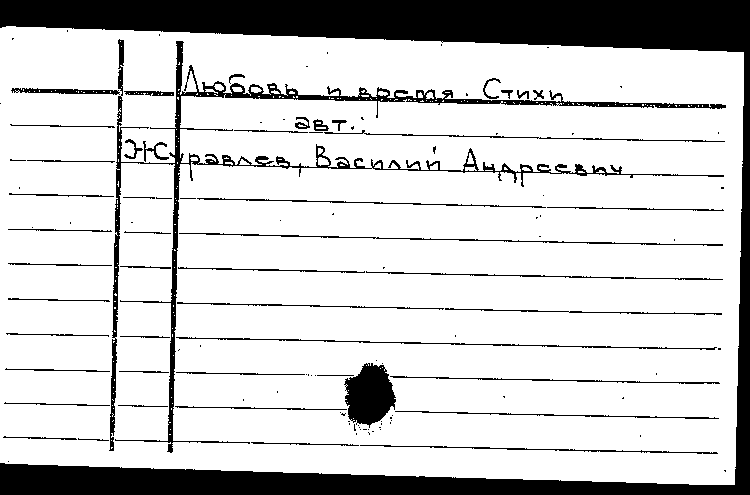 Любовь и время. Стихи
авт.:
Журавлев, Василий Андреевич.